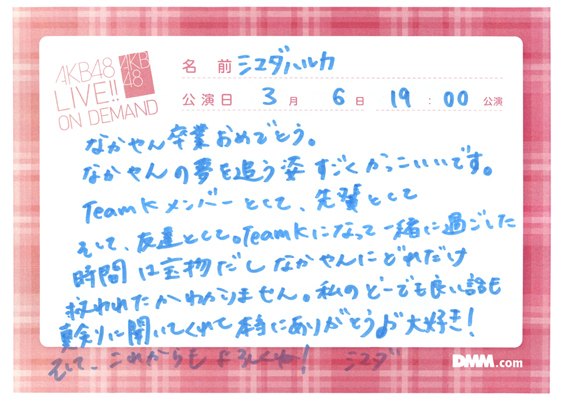 AKB48
LIVE!!
ON DEMAND
AKB
48
名前 シマダハルカ
公演日 3月 6日 19:00 公演
なかやん卒業おめでとう。
なかやんの夢を追う姿すごくかっこいいです。
TeamKメンバーとして、先輩として
そして、友達として。TeamKになって一緒に過ごした
時間は宝物だしなかやんにどれだけ
救われたかわかりません。私のどーでも良い話も
真剣に聞いてくれて本当にありがとう♪大好き!
そして、これからもよろしくね! シマダ
DMM.com